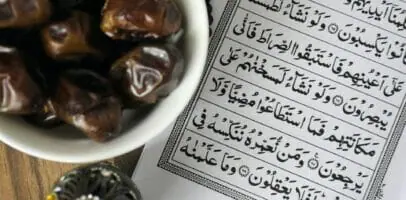 كَانُوا يَكْسِبُونَ ۝ وَلَوْ نَشَاءُ لَطَمَسْنَا
عَلَىٰ أَعْيُنِهِمْ فَاسْتَبَقُوا الصِّرَاطَ فَأَنَّىٰ
يُبْصِرُونَ ۝ وَلَوْ نَشَاءُ لَمَسَخْنٰهُمْ عَلَىٰ
مَكَانَتِهِمْ فَمَا اسْتَطَاعُوا مُضِيًّا وَلَا
يَرْجِعُونَ ۝ وَمَنْ نُعَمِّرْهُ نُنَكِّسْهُ فِي
أَفَلَا يَعْقِلُونَ ۝ وَمَا عَلَّمْنٰهُ